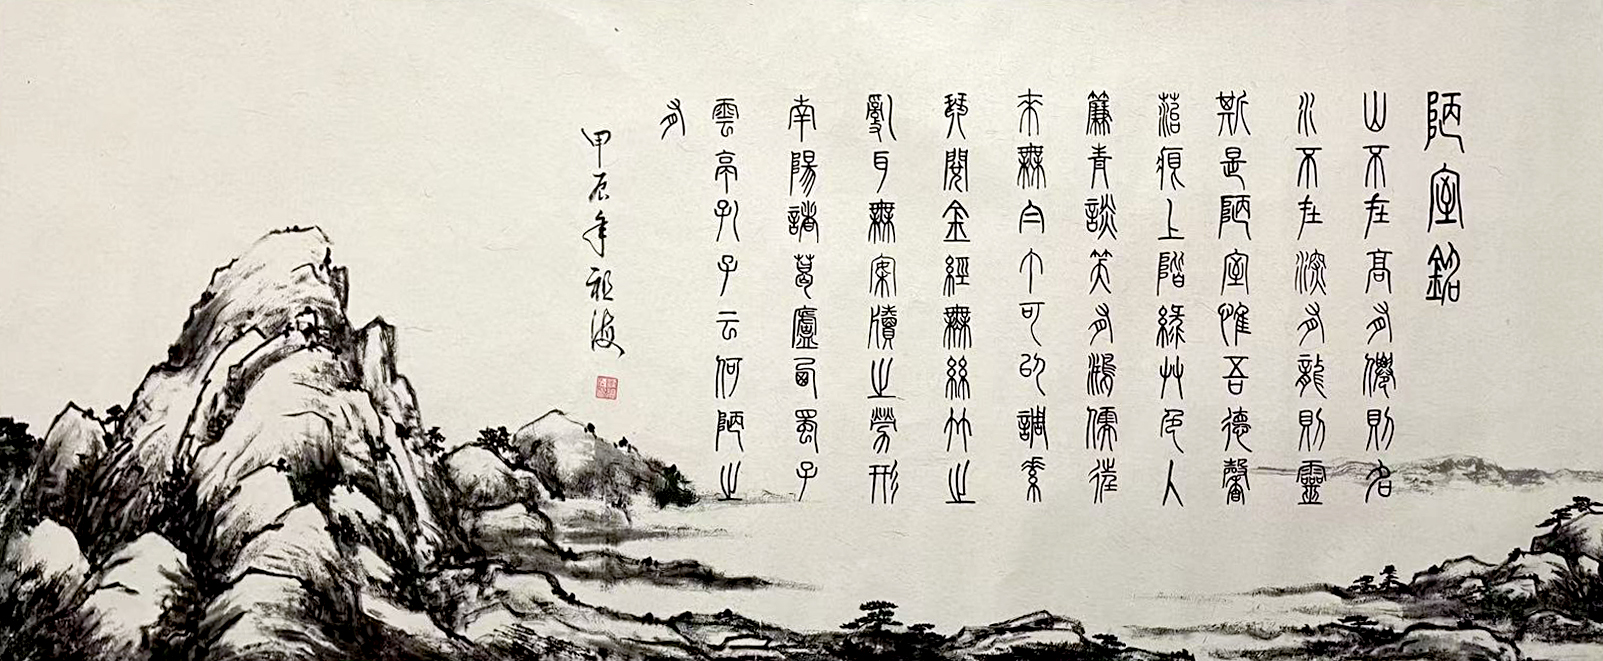 陋室銘
山不在高有僊則名
水不在深有龍則靈
斯是陋室惟吾德馨
苔痕上階綠艸色入
簾青談笑有鴻儒往
來無白丁可以調素
琴閱金經無絲竹之
亂耳無案牘之勞形
南陽諸葛廬西蜀子
雲亭孔子云何陋之
有
甲辰年祖海